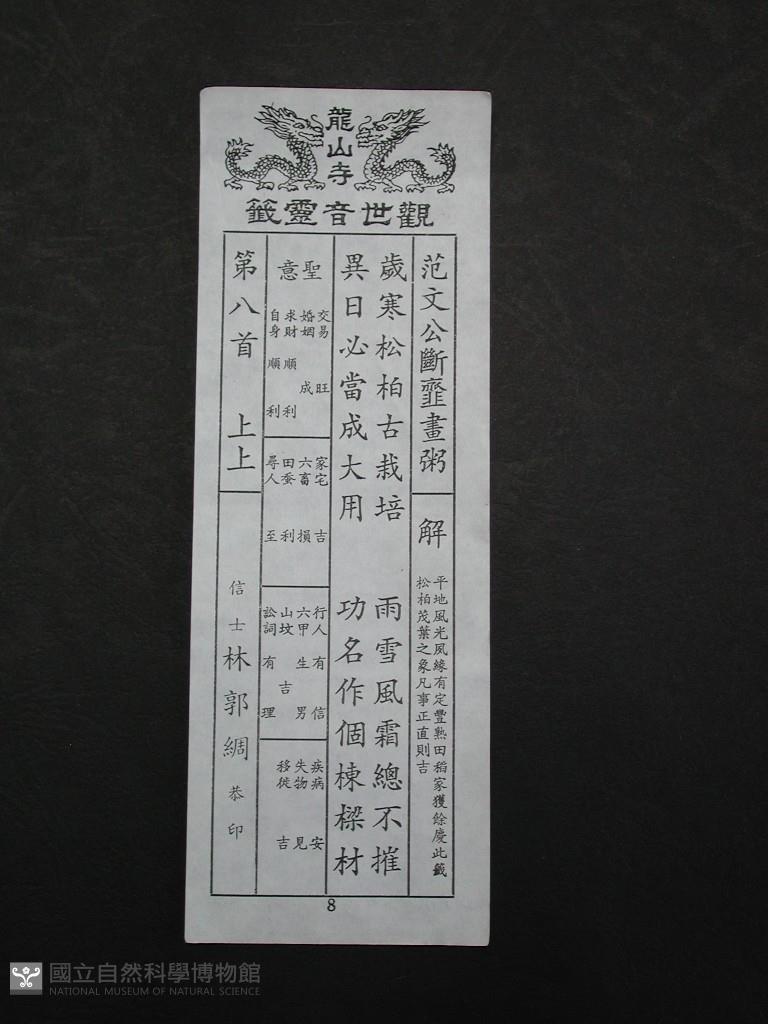 龍山寺
觀世音靈籤
范文公斷虀畫粥
解
平地風光風緣有定豐熟田稻家獲餘慶此籤
松柏茂葉之象凡事正直則吉
歲寒松柏古栽培 雨雪風霜總不摧
異日必當成大用 功名作個棟樑材
聖意
交易 旺
婚姻 成
求財 順利
自身 順利
家宅 吉
六畜 損
田蚕 利
尋人 至
行人 有信
六甲 生男
山坟 吉
訟詞 有理
疾病 安
失物 見
移徙 吉
第八首 上上
信士 林郭綢 恭印
8
國立自然科學博物館
NATIONAL MUSEUM OF NATURAL SCIENCE